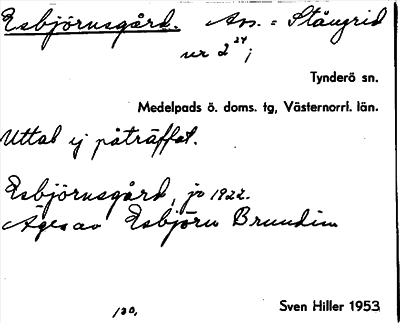 Esbjörnsgård. Avs. = Stångrid
nr 2 24;
Tynderö sn.
Medelpads ö. doms. tg, Västernorrl. län.
Uttal ej påträffat.
Esbjörnsgård, jr 1922.
Äges av Esbjörn Brundin
130.
Sven Hiller 1953